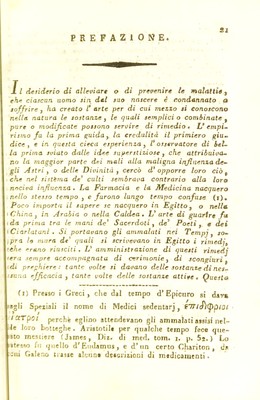 21
PREFAZIONE.
Il desiderio di alleviare o di prevenire le malattie,
che ciascun uomo sin dal suo nascere è condannato a
soffrire, ha creato l'arte per di cui mezzo si conoscono
nella natura le sostanze, le quali semplici o combinate,
pure o modificate possono servire di rimedio. L'empi-
rismo fu la prima guida, la credulità il primiero giu-
dice, e in questa cieca esperienza, l'osservatore di bel-
la prima sviato dalle idee superstiziose, che attribuiva-
no la maggior parte dei mali alla maligna influenza de-
gli Astri, o delle Divinità, cercò d'opporre loro ciò,
che nel sistema de' culti sembrava contrario alla loro
nociva influenza. La Farmacia e la Medicina nacquero
nello stesso tempo, e furono lungo tempo confuse (1).
Poco importa il sapere se nacquero in Egitto, o nella
China, in Arabia o nella Caldea. L'arte di guarire fu
da prima tra le mani de' Sacerdoti, de' Poeti, e dei
Ciarlatani. Si portavano gli ammalati nei Tempj, so-
pra le mura de' quali si scrivevano in Egitto i rimedj,
che erano riusciti. L'amministrazione di questi rimedj
era sempre accompagnata di cerimonie, di scongiuri,
di preghiere: tante volte si davano delle sostanze di nes-
suna efficacia, tante volte delle sostanze attive. Questo
(1) Presso i Greci, che dal tempo d'Epicuro si dava
agli Speziali il nome di Medici sedentarj, ἐπιδίφριοι
ἰατροί perchè eglino attendevano gli ammalati assisi nel-
le loro botteghe. Aristotile per qualche tempo fece que-
sto mestiere (James, Dis. di med. tom. 1. p. 52.) Lo
stesso fu quello d'Eudamus, e d'un certo Chariton, di
cui Galeno trasse alcune descrizioni di medicamenti.